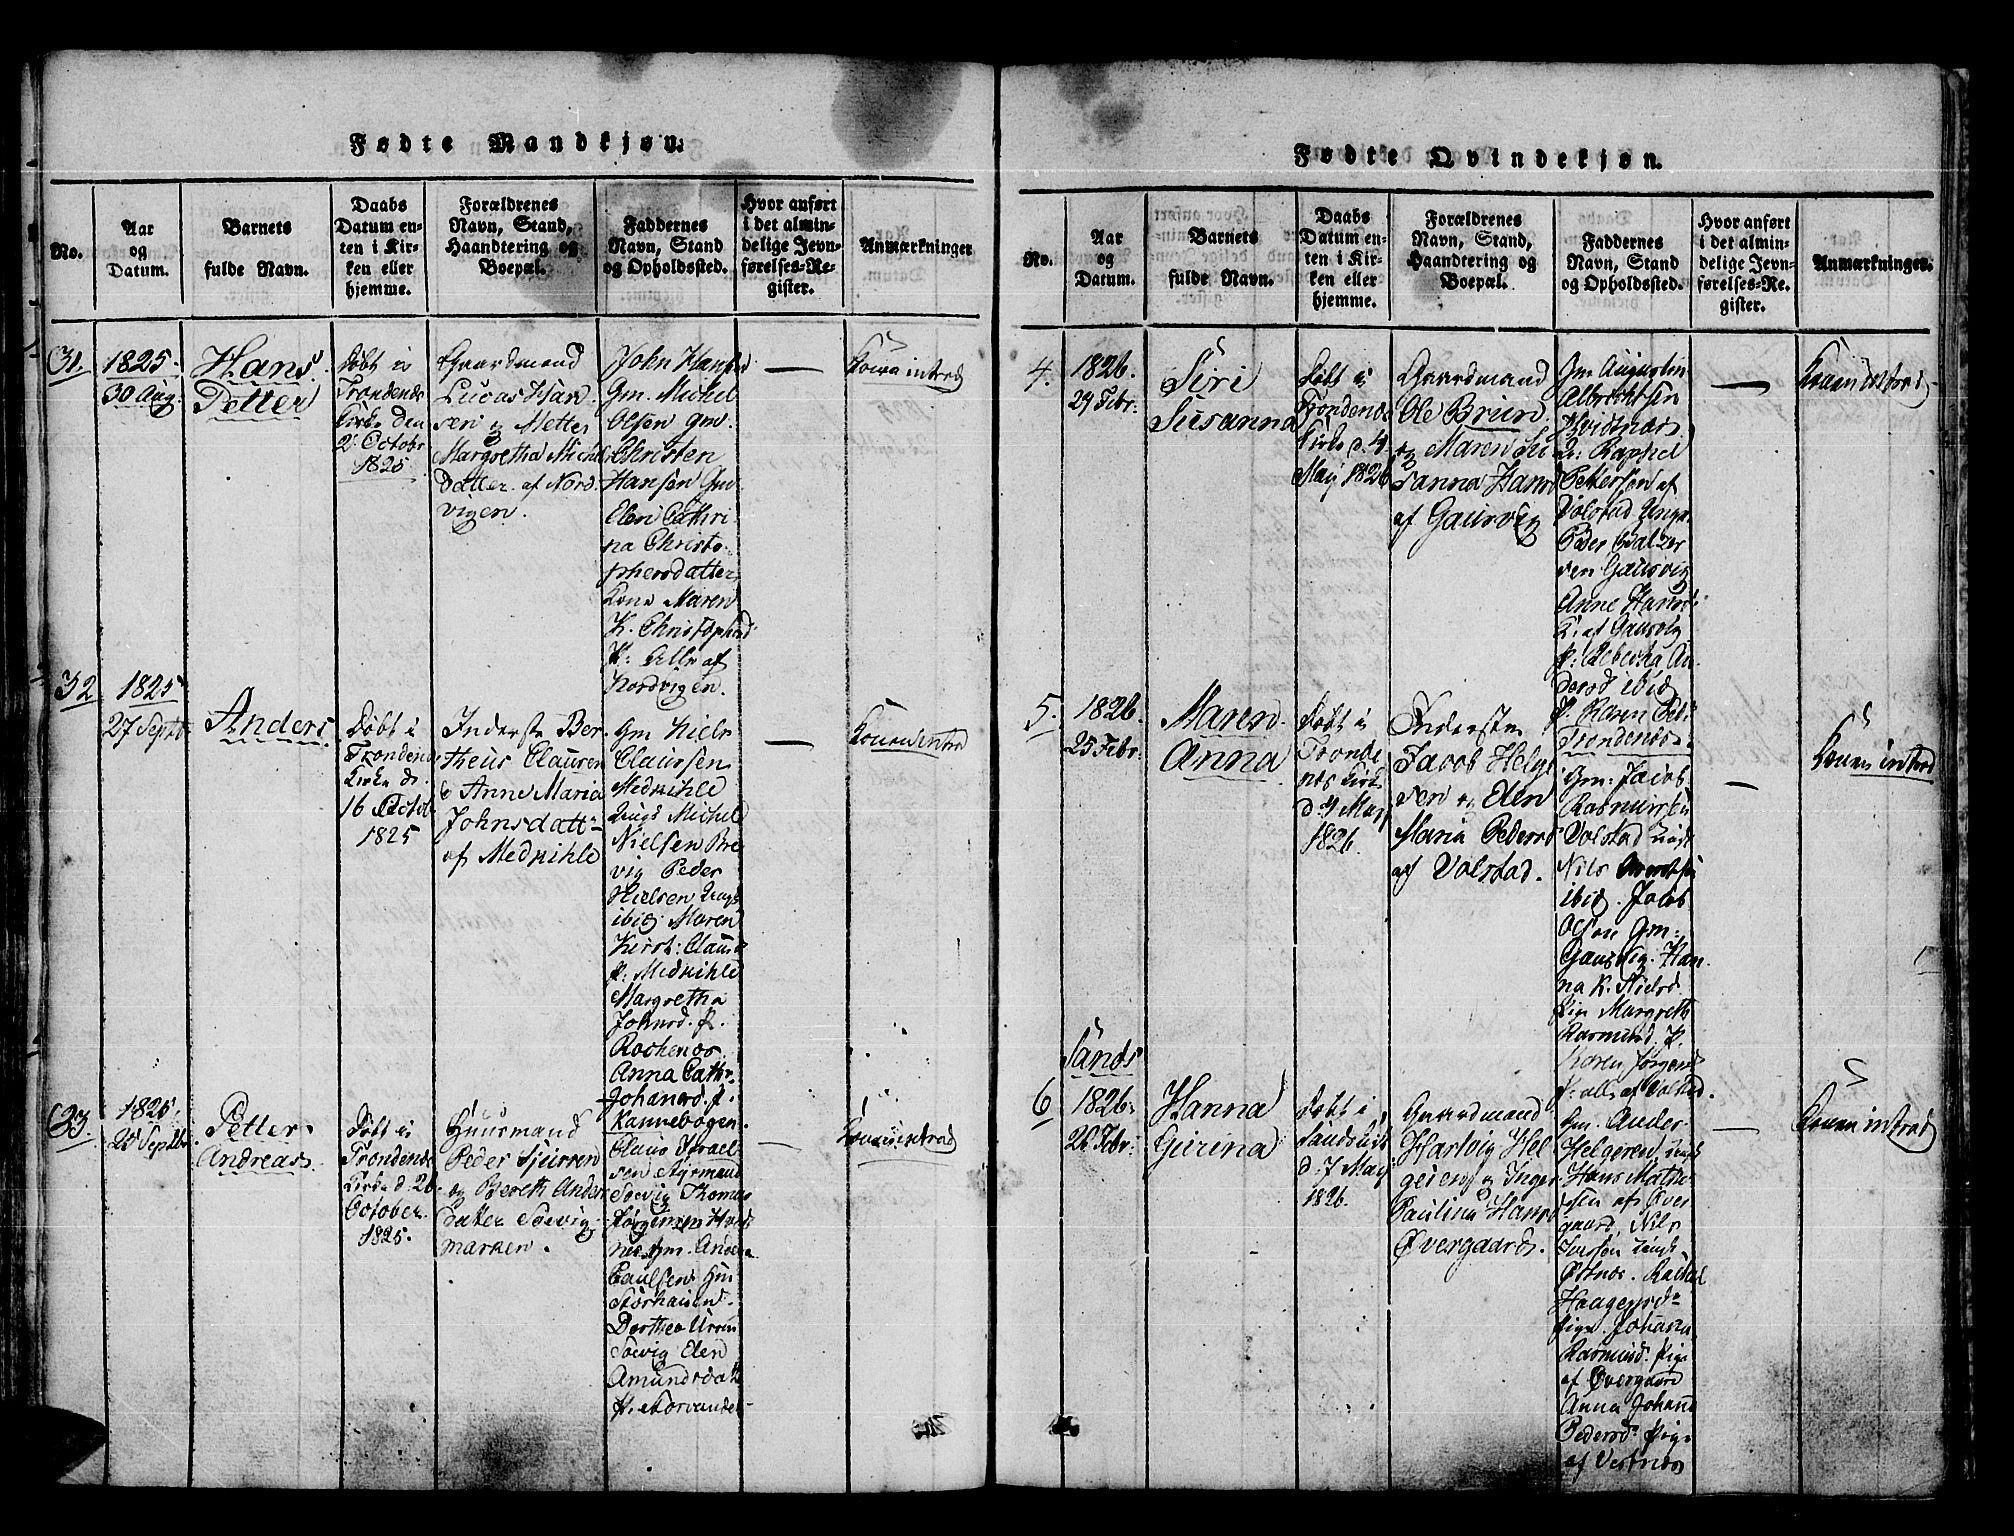 Fødte Mandkjøn.
No.
Aar
og
Datum.
Barnets
fulde Navn.
Daabs
Datum en-
ten i Kir-
ken eller
hjemme.
Forældrenes
Navn, Stand,
Haandtering og
Boepæl.
Faddernes
Navn, Stand
og Opholdssted.
Hvor anført
i det almin-
delige Jevn-
førelses-Re-
gister.
Anmærkninger
31.
1825.
30 Aug.
Hans
Petter
Døbt i
Trondenæs
Kirke den
2 Octobr
1825
Gaardmand
Lucas Han
sen og Mette
Margretha Michels
datter af Nord
vigen.
John Hansen
Gm. Michel
Olsen gm.
Christen
Hansen Gm
Elen Cathri
na Christo
phersdatter
Kone Maren
K. Christophersd
P: Alle af
Nordvigen.
—
Konen introd
32
1825
27 Septbr
Anders
Døbt i
Trondenæs
Kirke d.
16 Octob
1825
Inderste Ber
theus Clausen
& Anne Maria
Johnsdatt
af Medkihle
Gm Niels
Claussen
Medkihle
Ungk Michel
Nielsen Bre
vig Peder
Nielsen Ungk
ibid. Maren
Kirst: Clausd
p: Medkihle
Margretha
Johnsd. p.
Rochenæs
Anna Cathr.
Johansd. p.
Kannebogen.
—
Konen introd
33
1825.
28 Septbr.
Petter
Andreas
Døbt i
Trondenæs
Kirke d. 26
October
1825.
Huusmand
Peder Sjursen
og Bereth Ander
datter Soevig
marken.
Claus Israel
sen Styrmand
Soevig Thomas
Jørgensen
næs gm. Anders
Paulsen Gm
Storhausen
Dorthea
Soevig Elen
Amundsdatt
p. Norvander
—
Konen introd
Fødte Qvindekjøn.
No.
Aar
og
Datum.
Barnets
fulde Navn.
Daabs
Datum en-
ten i Kir-
ken eller
hjemme.
Forældrenes
Navn, Stand,
Haandtering og
Boepæl.
Faddernes
Navn, Stand
og Opholdssted.
Hvor anført
i det almin-
delige Jevn-
førelses-Re-
gister.
Anmærkninger.
4.
1826.
24 Febr:
Siri
Susanna
Døbt i
Trondenæs
Kirke d. 4
May 1826
Gaardmand
Ole Bruun
og Maren Su
sanna Hansd
af Gausvig
Gm Augustin
Albrechtsen
Qvidsnæs
D: Raphel
Pettersen af
Volstad Ungk
Peder Balzer
sen Gausvig
Anne Hansd
K: af Gausvig
p: Rebecha An
dersd ibid
P. Karen Ped:
Trondenæs.
—
Konen introd
5.
1826.
25 Febr:
Maren
Anna
Døbt i
Tronde
næs Kirke
d 4 May
1826.
Inderste
Jacob Helge
sen og Elen
Maria Pedersd
af Volstad.
Gm: Jacob
Rasmussen
Volstad Ungk
Nils
ibid. Jacob
Olsen Gm:
Gausvig. Han
na K. Nielsd
Pige Margreth
Rasmusd. P.
Karen Jørgensd
P: alle af Volstad.
—
Konen introd
Sands
6
1826:
26 Febr:
Hanna
Gurina
Døbt i
Sands Kirke
d. 7 May
1826.
Gaardmand
Hartvig Hel
gesen og Inger
Paulina Hansd
Øvergaard.
Gm: Ander
Helgesen, Ungk
Hans Mathi
sen af Øver
gaard, Nils
Ungk
Østnæs. Rachel
Haagensd
Pige. Johanna
Rasmusd. Pige
af Øvergaard
Anna Johana
Pedersd: Pige
af Vestnæs
—
Konen introd